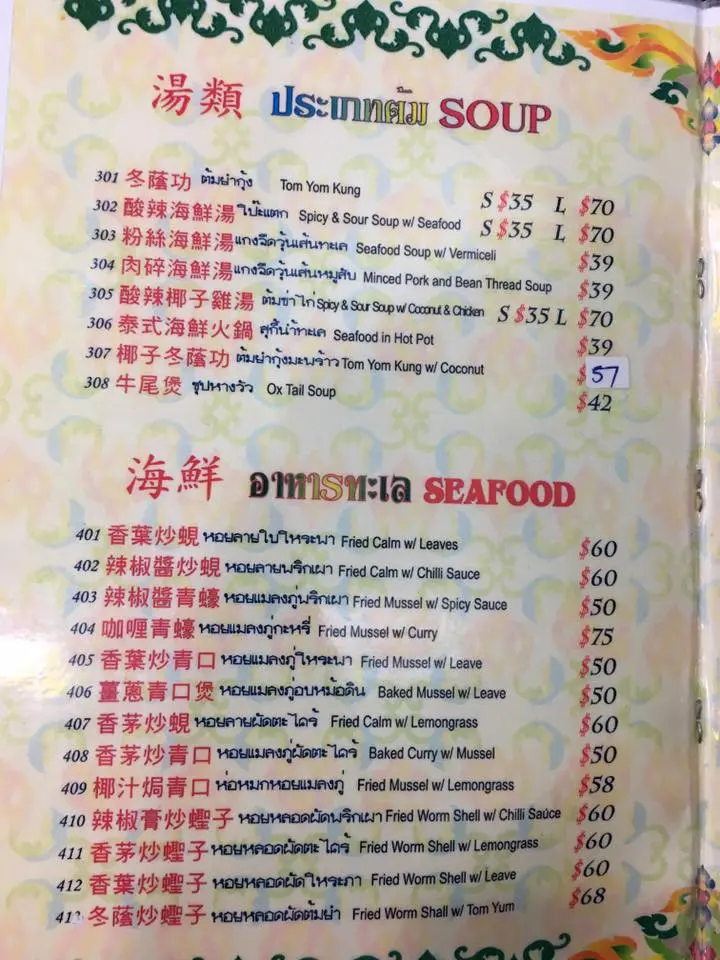 湯類 ประเภทต้ม SOUP
301 冬蔭功 ต้มยำกุ้ง Tom Yom Kung S $35 L $70
302 酸辣海鮮湯 โป๊ะแตก Spicy & Sour Soup w/ Seafood S $35 L $70
303 粉絲海鮮湯 แกงจืดวุ้นเส้นทะเล Seafood Soup w/ Vermiceli $39
304 肉碎海鮮湯 แกงจืดวุ้นเส้นหมูสับ Minced Pork and Bean Thread Soup $39
305 酸辣椰子雞湯 ต้มข่าไก่ Spicy & Sour Soup w/ Coconut & Chicken S $35 L $70
306 泰式海鮮火鍋 สุกี้น้ำทะเล Seafood in Hot Pot $39
307 椰子冬蔭功 ต้มยำกุ้งมะพร้าว Tom Yom Kung w/ Coconut $57
308 牛尾煲 ซุปหางวัว Ox Tail Soup $42
海鮮 อาหารทะเล SEAFOOD
401 香葉炒蜆 หอยลายใบโหระพา Fried Calm w/ Leaves $60
402 辣椒醬炒蜆 หอยลายพริกเผา Fried Calm w/ Chilli Sauce $60
403 辣椒醬青蠔 หอยแมลงภู่พริกเผา Fried Mussel w/ Spicy Sauce $50
404 咖喱青蠔 หอยแมลงภู่กะหรี่ Fried Mussel w/ Curry $75
405 香葉炒青口 หอยแมลงภู่โหระพา Fried Mussel w/ Leave $50
406 薑蔥青口煲 หอยแมลงภู่อบหม้อดิน Baked Mussel w/ Leave $50
407 香茅炒蜆 หอยลายผัดตะไคร้ Fried Calm w/ Lemongrass $60
408 香茅炒青口 หอยแมลงภู่ผัดตะไคร้ Baked Curry w/ Mussel $50
409 椰汁焗青口 ห่อหมกหอยแมลงภู่ Fried Mussel w/ Lemongrass $58
410 辣椒膏炒蟶子 หอยหลอดผัดพริกเผา Fried Worm Shell w/ Chilli Sauce $60
411 香茅炒蟶子 หอยหลอดผัดตะไคร้ Fried Worm Shell w/ Lemongrass $60
412 香葉炒蟶子 หอยหลอดผัดโหระภา Fried Worm Shell w/ Leave $60
413 冬蔭炒蟶子 หอยหลอดผัดต้มยำ Fried Worm Shall w/ Tom Yum $68